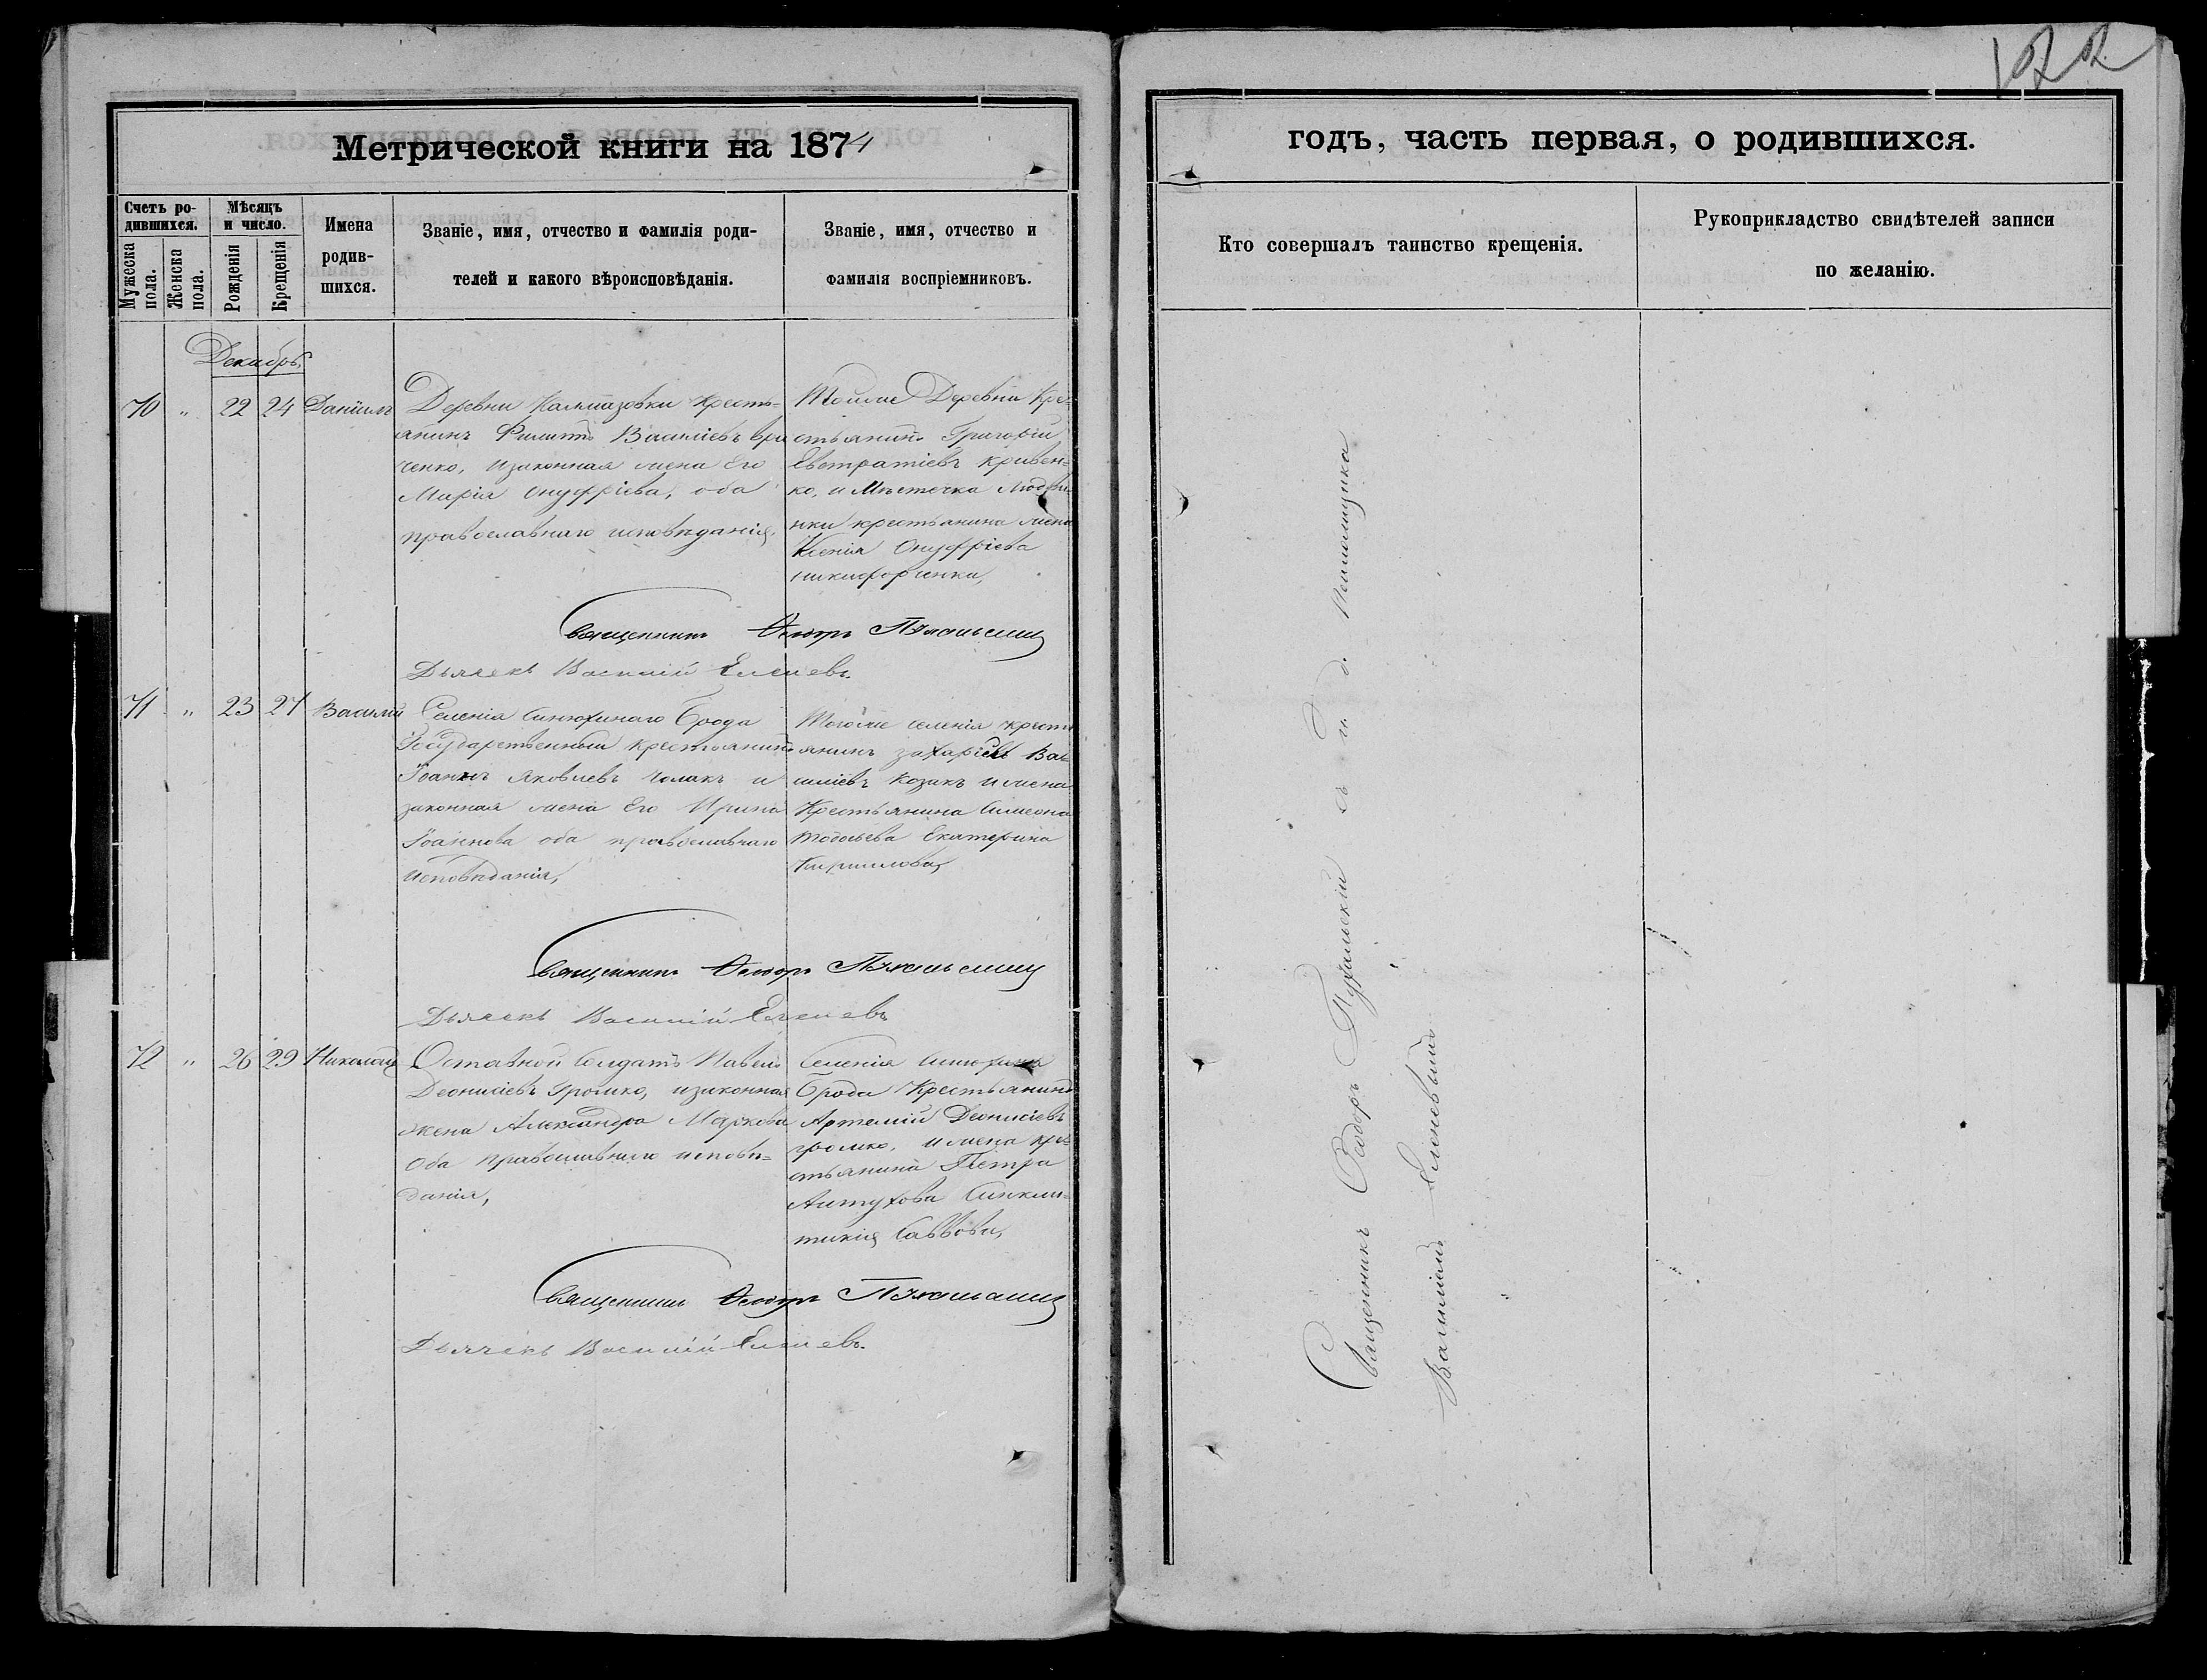 122
Метрической книги на 1874
годъ, часть первая, о родившихся.
Счетъ ро-
дившихся.
Мужеска пола.
Женска пола.
Мѣсяцъ
и число.
Рожденія
Крещенія
Имена
родив-
шихся.
Званіе, имя, отчество и фамилія роди-
телей и какого вѣроисповѣданія.
Званіе, имя, отчество и
фамилія воспріемниковъ.
Кто совершалъ таинство крещенія.
Рукоприкладство свидѣтелей записи
по желанію.
Декабрь,
70 " 22 24 Даніилъ
Деревни Кресть=
янинъ Филиппъ Василіевъ
ченко, и законная жена Его
Марія Онуфріева, оба
православнаго исповѣданія,
Тойже Деревни Кре=
стьянинъ Григорій
Евстратіевъ Кривен=
ко, и Мѣстечка
нки крестьянина жена
Ксенія Онуфріева
никифоренко,
Священникъ Ѳеодоръ
Дьячекъ Василій
71 " 23 27 Василій
Селенія Синюхинаго Брода
Государственный Крестьянинъ
Іоаннъ Яковлевъ и
законная жена Его Ирина
Іоаннова оба православнаго
исповѣданія,
Тогоже селенія крест
янинъ Захарій Ва=
силіевъ Козакъ и жена
Крестьянина Симеона
Екатерина
Кириллова,
Священникъ Ѳеодоръ
Дьячекъ Василій
72 " 26 29 Николай
Отставной Солдатъ Павелъ
Деонисіевъ Громко, и законная
жена Александра Маркова
Оба православнаго исповѣ=
данія,
Селенія Синюхина
Брода Крестьянинъ
Артемій Деонисіевъ
громко, и жена кре=
стьянина Петра
Алтухова Синкли=
тикія Саввова,
Священникъ Ѳеодоръ
Дьячекъ Василій
Священникъ Ѳеодоръ съ и. д. Псаломщика
Василіемъ